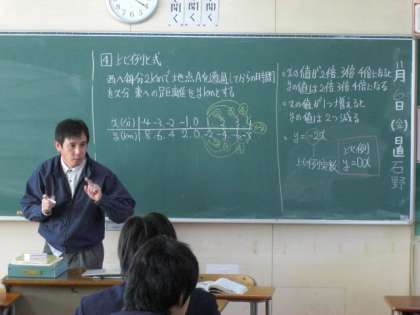 開く
開く
4 比例と式
西へ毎分2kmで地点Aを通過してからの時間
をx分 東への距離をykmとする
x(分) -4 -3 -2 -1 0 1 2 3 4
y(km) 8 6 4 2 0 -2 -4 -6 -8
・xの値が2倍、3倍、4倍になると
yの値は2倍、3倍、4倍になる
・xの値が1つ増えると
yの値は2つ減る
・y=-2x
比例定数
比例
y=ax
11月6日(金)日直
石野